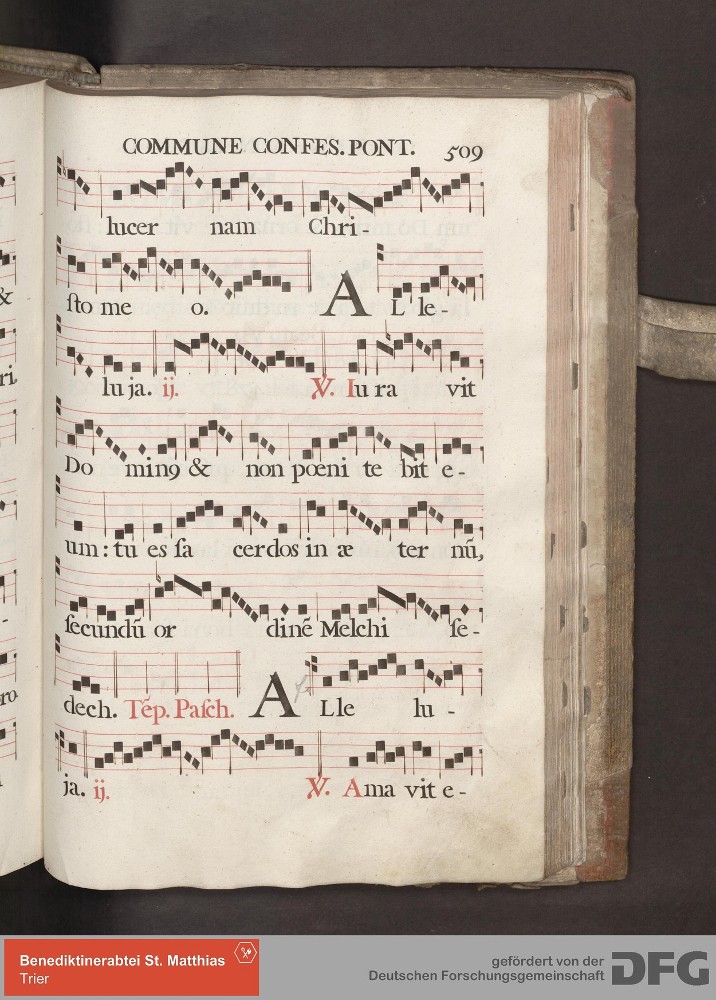 COMMUNE CONFES. PONT. 509
lucer nam Chri-
ſto me o. A L le-
lu ja. ij. ℣. Iu ra vit
Do min9 & non pœni te bit e-
um: tu es ſa cerdos in æ ter nũ,
ſecundũ or dinẽ Melchi ſe-
dech. Tẽp. Paſch. A L le lu -
ja. ij. ℣. Ama vit e-
&
ri,
-
ro
Benediktinerabtei St. Matthias
Trier
gefördert von der
Deutschen Forschungsgemeinschaft
DFG